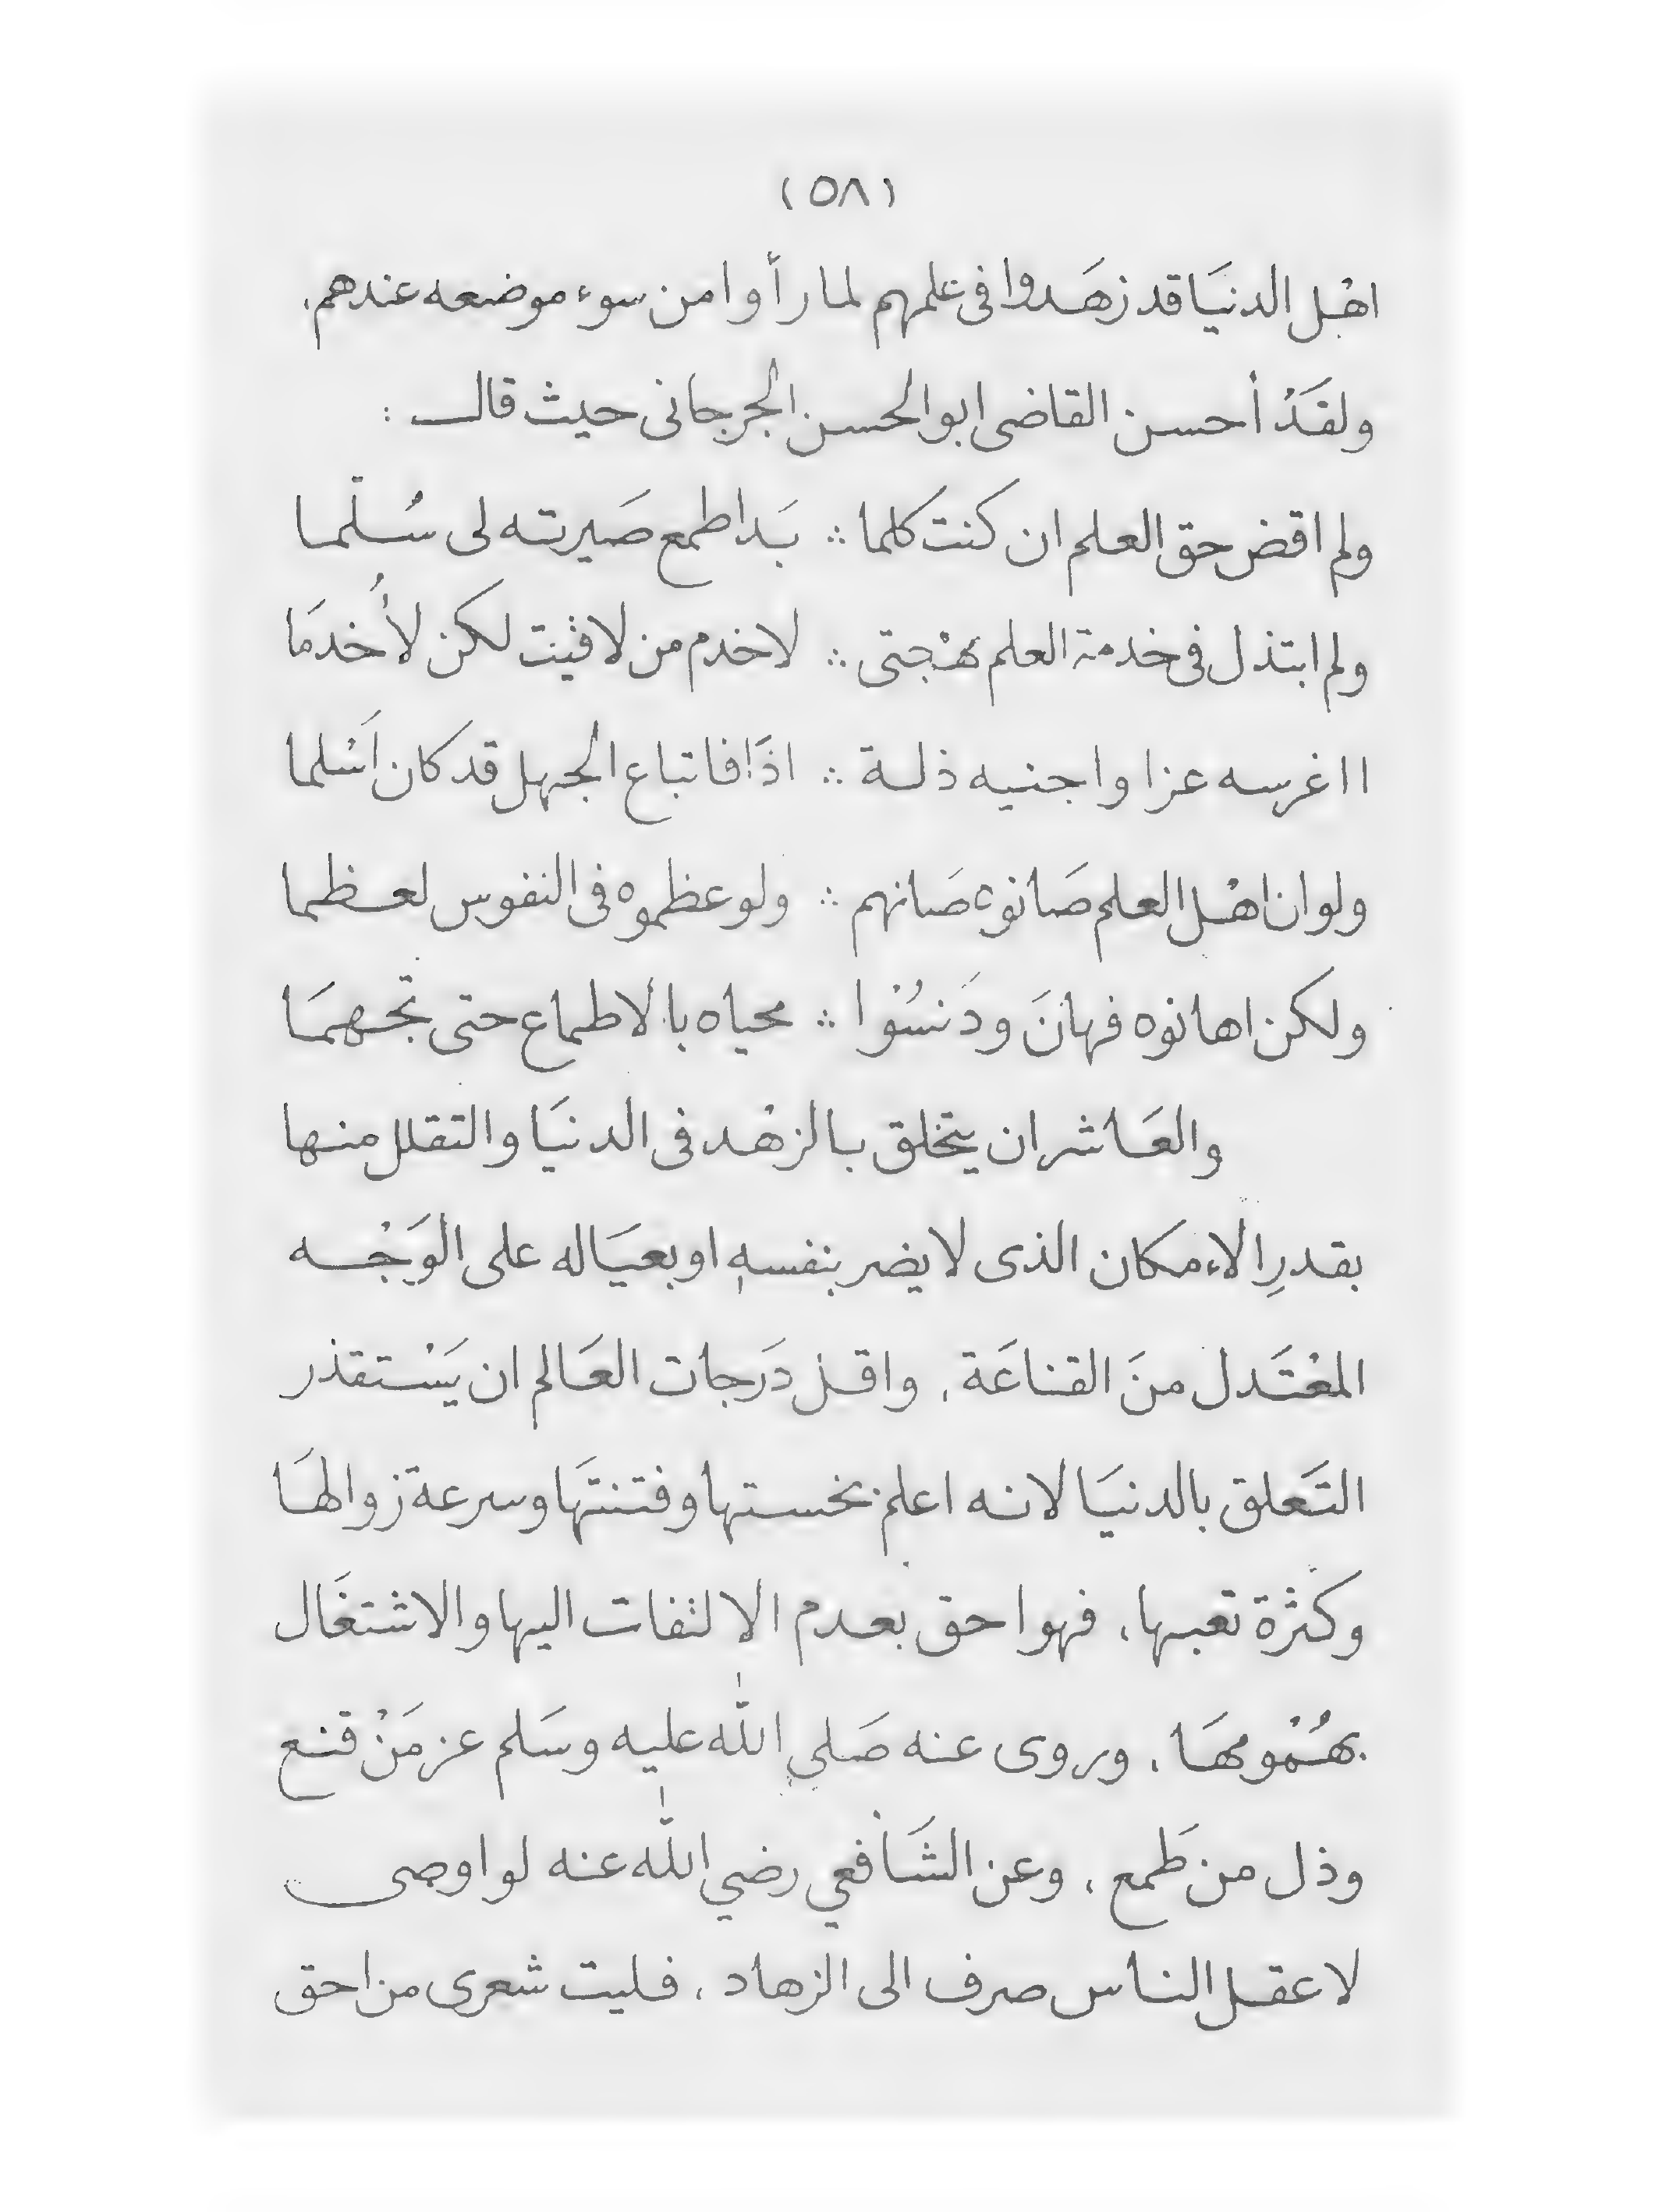 (٥٨)
اهْل الدنيَا قد زهَدوا فى علمهم لما رأوا من سوء موضعه عندهم.
ولقَدْ أحسن القاضى ابو الحسن الجرجانى حيث قال :
ولم اقض حق العلم ان كنت كلما ∴ بَدا طمع صَيرته لى سُلّما
ولم ابتذل فى خدمة العلم مهْجتى ∴ لاخدم من لاقيت لكن لأُخدمَا
ااغرسه عزا واجنيه ذلة ∴ اذًا فاتباع الجهل قد كان اَسْلما
ولو ان اهْل العلم صَانوه صَانهم ∴ ولو عظموه فى النفوس لعظما
ولكن اهانوه فهانَ ودَنسُوْا ∴ محياه بالاطماع حتى تجَهمَا
والعَاشر ان يتخلق بالزهْد فى الدنيَا والتقلل منها
بقدرِ الاءمكان الذى لا يضر بنفسهِ او بعيَاله على الوَجْه
المعْتَدل منَ القناعَة . واقل دَرجات العَالم ان يَسْتقذر
التَعلق بالدنيَا لانه اعلم بخستها وفتنتَها وسرعة زوالهَا
وكثرة تعبها . فهو احق بعدم الالتفات اليها والاشتغَال
بهُمْوْمهَا . وروى عنه صَلى اللّٰه عليه وسَلم عز مَنْ قنع
وذل من طَمع . وعن الشَافعي رضي اللّٰه عنه لو اوصى
لاعقل الناس صرف الى الزهاد . فليت شعرى من احق